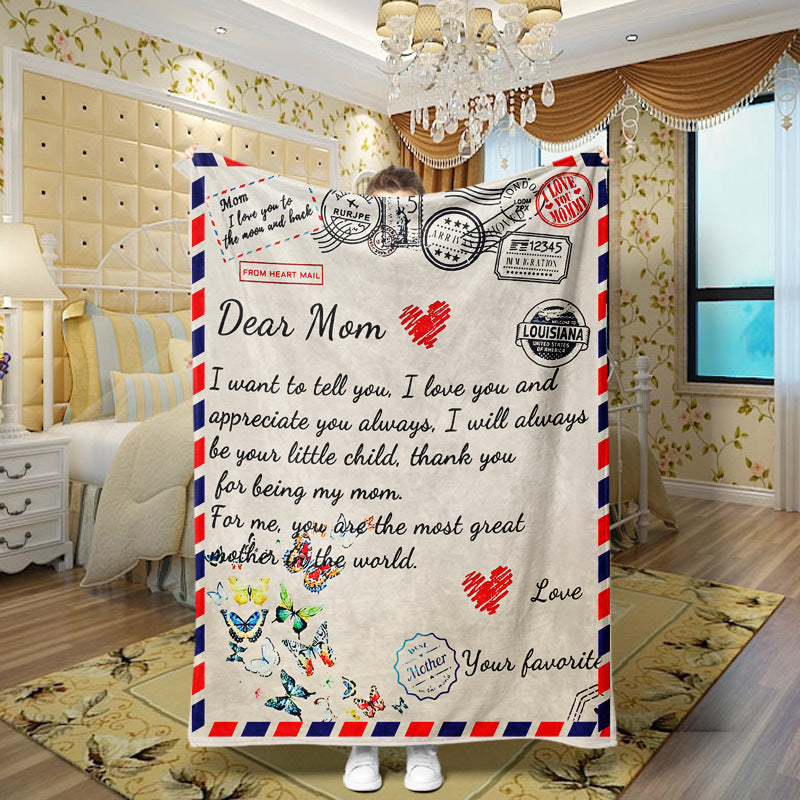 Mom
I love you to
the moon and back
RURJPE
FROM HEART MAIL
ARRIV
LONDON
LODM
ZPX
I LOVE
YOU
MOMMY
12345
IMMIGRATION
Dear Mom
WELCOME TO
LOUISIANA
UNITED STATES
OF AMERICA
I want to tell you, I love you and
appreciate you always, I will always
be your little child, thank you
for being my mom.
For me, you are the most great
mother in the world.
Love
BEST
Mother
in the world
Your favorite